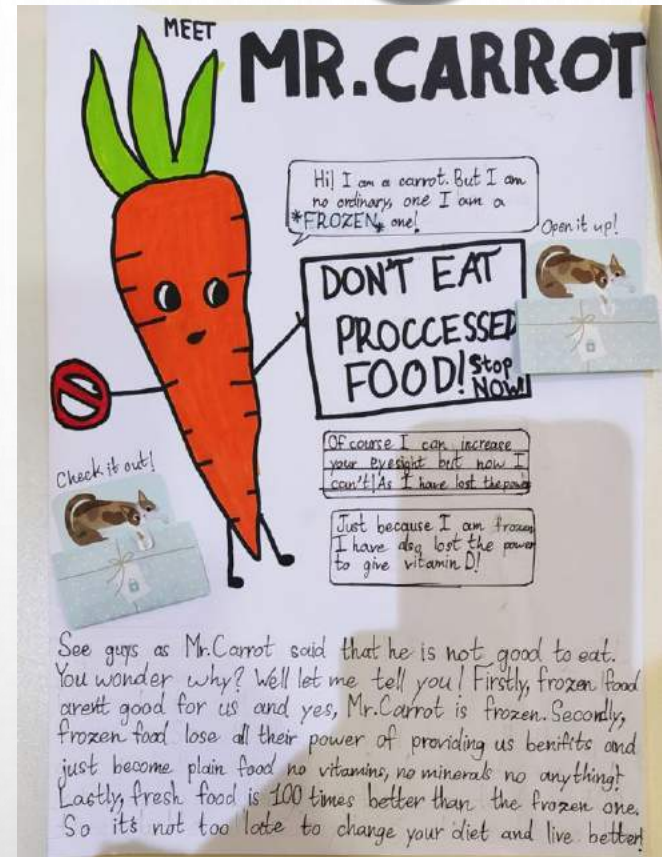 MEET
MR.CARROT
Hi! I am a carrot. But I am
no ordinary, one I am a
*FROZEN* one!
Open it up!
DON'T EAT
PROCCESSED
FOOD! Stop
NOW!
Of course I can increase
your eyesight but now I
can't! As I have lost the power
Just because I am frozen
I have also lost the power
to give vitamin D!
Check it out!
See guys as Mr.Carrot said that he is not good to eat.
You wonder why? Well let me tell you! Firstly, frozen food
aren't good for us and yes, Mr.Carrot is frozen. Secondly,
frozen food lose all their power of providing us benifits and
just become plain food no vitamins, no minerals no anything!
Lastly, fresh food is 100 times better than the frozen one.
So it's not too late to change your diet and live better!